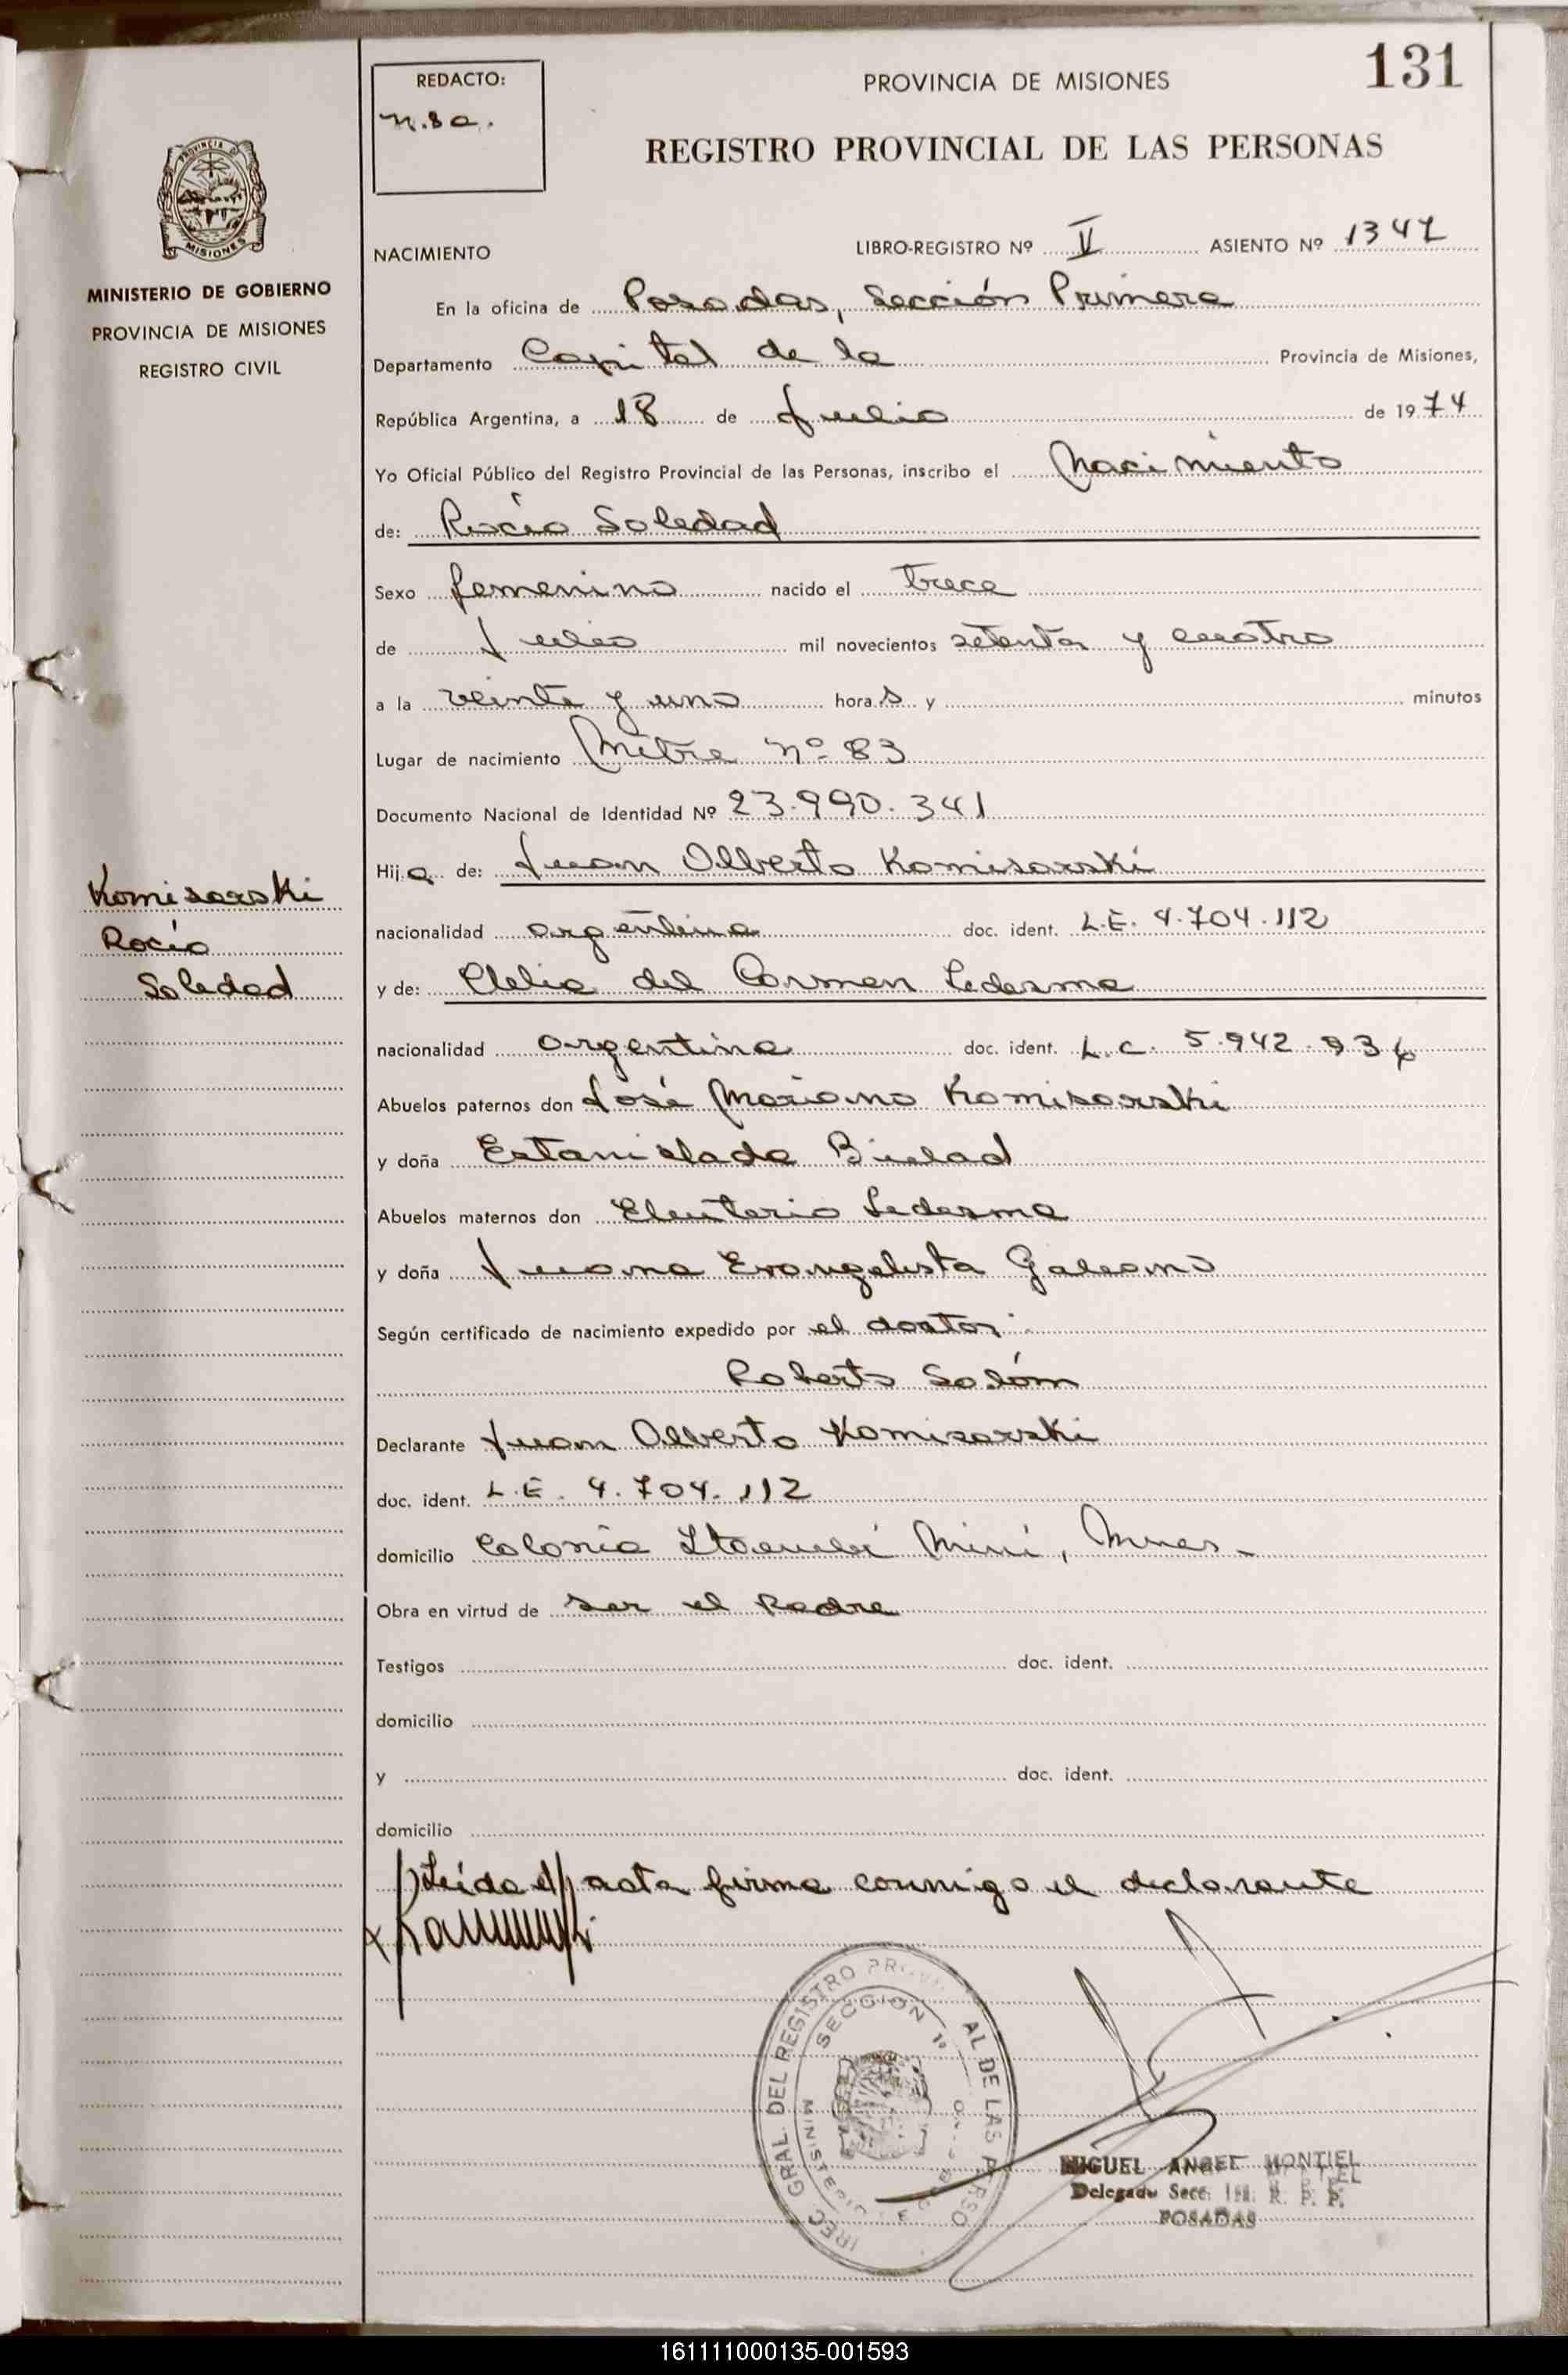 131
REDACTO:
PROVINCIA DE MISIONES
REGISTRO PROVINCIAL DE LAS PERSONAS
PROVINCIA DE
MISIONES
MINISTERIO DE GOBIERNO
PROVINCIA DE MISIONES
REGISTRO CIVIL
NACIMIENTO LIBRO-REGISTRO Nº II ASIENTO Nº
En la oficina de Posadas, Sección Primera
Departamento Capital de la Provincia de Misiones,
República Argentina, a 18 de Julio de 1974
Yo Oficial Público del Registro Provincial de las Personas, inscribo el Nacimiento
de: Rocío Soledad
Sexo femenino nacido el trece
de Julio mil novecientos setenta y cuatro
a la veinte y uno horas y minutos
Lugar de nacimiento Mitre Nº 83
Documento Nacional de Identidad Nº 23.990.341
Hija de: Juan Alberto Komisarski
Komisarski
Rocío
Soledad
nacionalidad argentina doc. ident. L.E. 4.704.112
y de: Clelia del Carmen Ledesma
nacionalidad argentina doc. ident. L.C. 5.942.936
Abuelos paternos don José Mariano Komisarski
y doña Estanislada Bielad
Abuelos maternos don Eleuterio Ledesma
y doña Juana Evangelista Galeano
Según certificado de nacimiento expedido por el doctor
Roberto Solóm
Declarante Juan Alberto Komisarski
doc. ident. L.E. 4.704.112
domicilio Colonia Itaembé Miní, Mnes-
Obra en virtud de ser el Padre
Testigos doc. ident.
domicilio
y doc. ident.
domicilio
Leída el acta firma conmigo el declarante
DIREC. GRAL. DEL REGISTRO PROVINCIAL DE LAS PERSO
SECCION 1ª
MIGUEL ANGEL MONTIEL
Delegado Secc. 1ra. R. P. P.
POSADAS
161111000135-001593